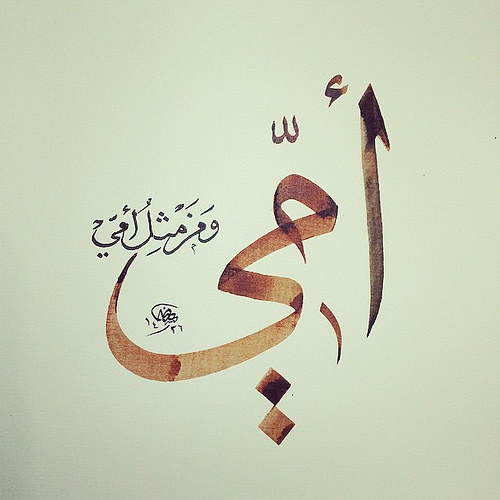 أمّي
وَمَنْ مِثْلُ أُمّي
١٤٣٦